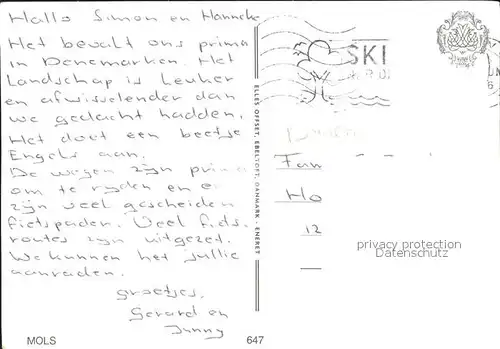 Hallo Simon en Hanneke
Het bevalt ons prima
in Denemarken. Het
Landschap is leuker
en afwisselender dan
we gedacht hadden.
Het doet een beetje
Engels aan.
De wegen zijn prima
om te ryden en er
zijn veel gescheiden
fietspaden. Veel fiets-
routes zijn uitgezet.
We kunnen het jullie
aanraden.
groetjes,
Gerard en
Jenny
MOLS
647
ELLES OFFSET, EBELTOFT, DANMARK - ENERET
SKI
Fam
Ho
12
privacy protection
Datenschutz